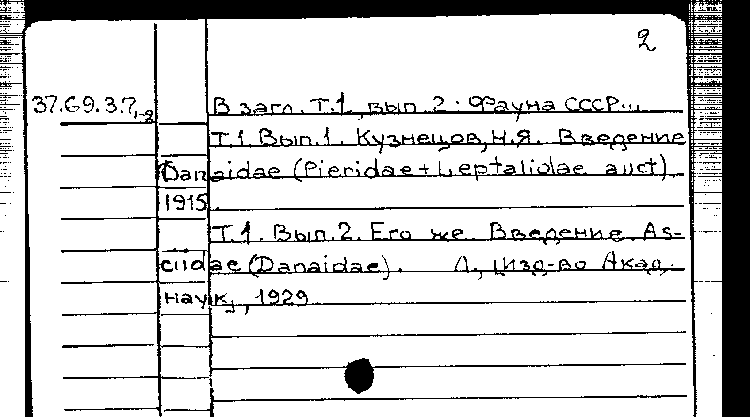 2
37.69.3.7,-2 В загл. Т.1, вып. 2: Фауна СССР...
Т.1. Вып.1. Кузнецов, Н.Я. Введение
Danaidae (Pieridae+Leptalidae auct).
1915.
Т.1. Вып.2. Его же. Введение. As-
ciidae (Danaidae). Л., Изд-во Акад.
наук, 1929